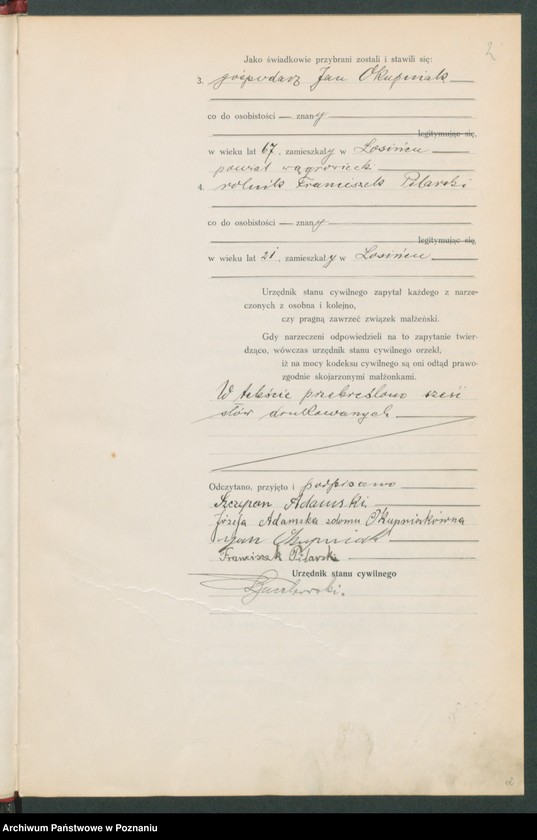 2
Jako świadkowie przybrani zostali i stawili się:
3. gospodarz Jan Okupniak
co do osobistości — znany
legitymując się,
w wieku lat 67, zamieszkały w Łosińcu
powiat wągrowiecki
4. rolnik Franciszek Pilarski
co do osobistości — znany
legitymując się,
w wieku lat 21, zamieszkały w Łosińcu
Urzędnik stanu cywilnego zapytał każdego z narze-
czonych z osobna i kolejno,
czy pragną zawrzeć związek małżeński.
Gdy narzeczeni odpowiedzieli na to zapytanie twier-
dząco, wówczas urzędnik stanu cywilnego orzekł,
iż na mocy kodeksu cywilnego są oni odtąd prawo-
zgodnie skojarzonymi małżonkami.
W tekście przekreślono sześć
słów drukowanych
Odczytano, przyjęto i podpisano
Szczepan Adamski
Józefa Adamska zdomu Okupniakówna
Jan Okupniak
Franciszek Pilarski
Urzędnik stanu cywilnego
2
Archiwum Państwowe w Poznaniu